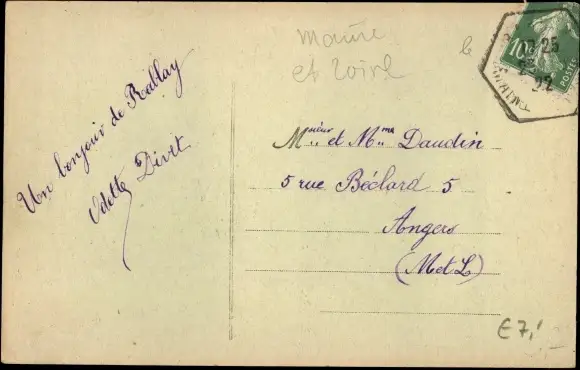 Un bonjour de Rablay
Odette Divet
Maine
et Loire
Msieur et Mme Daudin
5 rue Béclard 5
Angers
(M et L)
10c
25
22
POSTES
€ 7,-